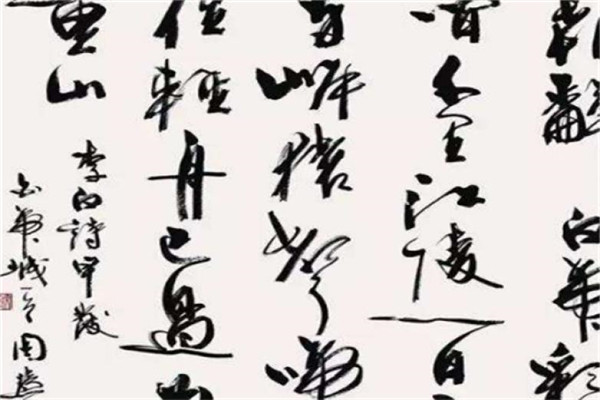 辭白帝彩
間千里江陵一日
岸猿聲啼
住輕舟已過
重山
李白詩早發
白帝城